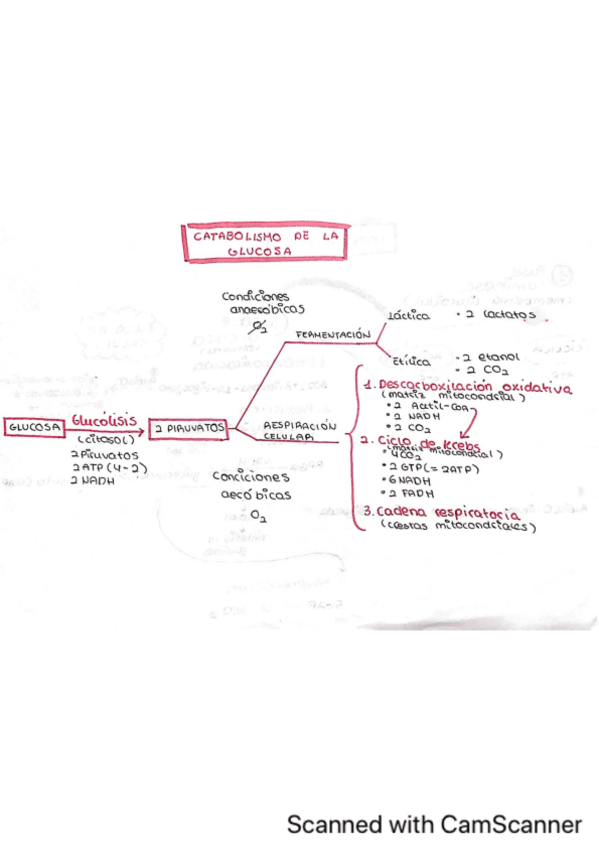 CATABOLISMO DE LA
GLUCOSA
Condiciones
anaeróbicas
O2
FERMENTACIÓN
Láctica • 2 lactatos
Etílica • 2 etanol
• 2 CO2
GLUCOSA
Glucólisis
(citosol)
2 Piruvatos
2 ATP (4-2)
2 NADH
2 PIRUVATOS
RESPIRACIÓN
CELULAR
Condiciones
aeróbicas
O2
1. Descarboxilación oxidativa
(matriz mitocondrial)
• 2 Acetil-CoA
• 2 NADH
• 2 CO2
2. Ciclo de Krebs
(matriz mitocondrial)
• 4CO2
• 2 GTP (= 2ATP)
• 6 NADH
• 2 FADH
3. Cadena respiratoria
(crestas mitocondriales)
Scanned with CamScanner